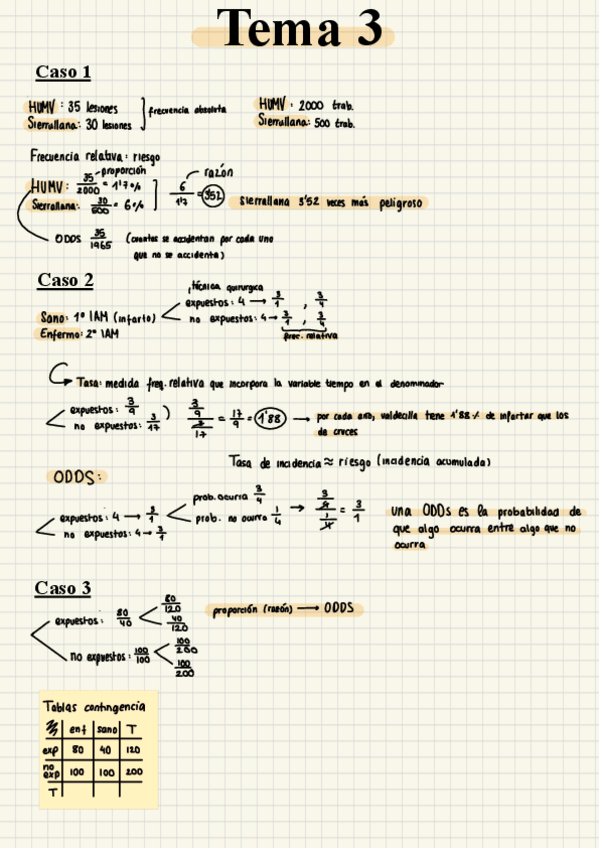 Tema 3
Caso 1
HUMV : 35 lesiones
Sierrallana: 30 lesiones
frecuencia absoluta
HUMV : 2000 trab.
Sierrallana: 500 trab.
Frecuencia relativa: riesgo
HUMV: 35/2000 = 1'7% proporción
Sierrallana: 30/500 = 6%
6/1'7 = 3'52 razón
Sierrallana 3'52 veces más peligroso
ODDS 35/1965 (cuantos se accidentan por cada uno
que no se accidenta)
Caso 2
Sano: 1º IAM (infarto)
Enfermo: 2º IAM
técnica quirurgica
expuestos: 4 → 3/1 , 3/4
no expuestos: 4 → 3/1 , 3/4
frec. relativa
Tasa: medida freq. relativa que incorpora la variable tiempo en el denominador
expuestos: 3/9
no expuestos: 3/17
3/9 / 3/17 = 17/9 = 1'88 → por cada año, valdecilla tiene 1'88 % de infartar que los
de cruces
Tasa de incidencia ≈ riesgo (incidencia acumulada)
ODDS:
expuestos: 4 → 3/1
no expuestos: 4 → 3/1
prob. ocurra 3/4
prob. no ocurra 1/4
→ 3/4 / 1/4 = 3/1
una ODDs es la probabilidad de
que algo ocurra entre algo que no
ocurra
Caso 3
expuestos: 80/40 80/120 40/120
no expuestos: 100/100 100/200 100/200
proporción (razón) → ODDS
Tablas contingencia
enf sano T
exp 80 40 120
no exp 100 100 200
T